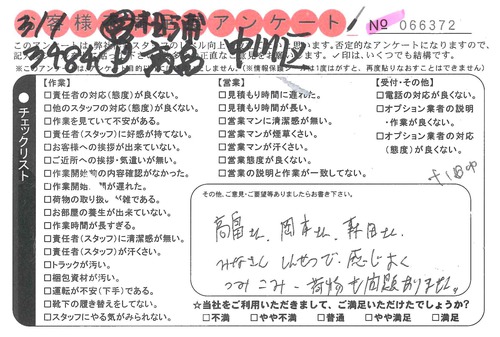 お客様アンケート
No 066372
【作業】
□責任者の対応(態度)が良くない。
□他のスタッフの対応(態度)が良くない。
□作業を見ていて不安がある。
□責任者(スタッフ)に好感が持てない。
□お客様への挨拶が出来ていない。
□ご近所への挨拶・気遣いが無い。
□作業開始の内容確認がなかった。
□作業開始が遅れた。
□荷物の取り扱いが雑である。
□お部屋の養生が出来ていない。
□作業時間が長すぎる。
□責任者(スタッフ)に清潔感が無い。
□責任者(スタッフ)が汗くさい。
□トラックが汚い。
□梱包資材が汚い。
□運転が不安(下手)である。
□靴下の履き替えをしてない。
□スタッフにやる気がみられない。
チェックリスト
【営業】
□見積もり時間に遅れた。
□見積もり時間が長い。
□営業マンに清潔感が無い。
□営業マンが煙草くさい。
□営業マンが汗くさい。
□営業態度が良くない。
□営業の説明と作業が一致してない。
【受付・その他】
□電話の対応が良くない。
□オプション業者の説明・作業が良くない。
□オプション業者の対応(態度)が良くない。
その他、ご意見・ご要望等ありましたらお書き下さい。
みなさん しんせつで、感じよく
つみこみ・荷物も問題ありません。
☆当社をご利用いただきまして、ご満足いただけたでしょうか?
□不満 □やや不満 □普通 □やや満足 □満足